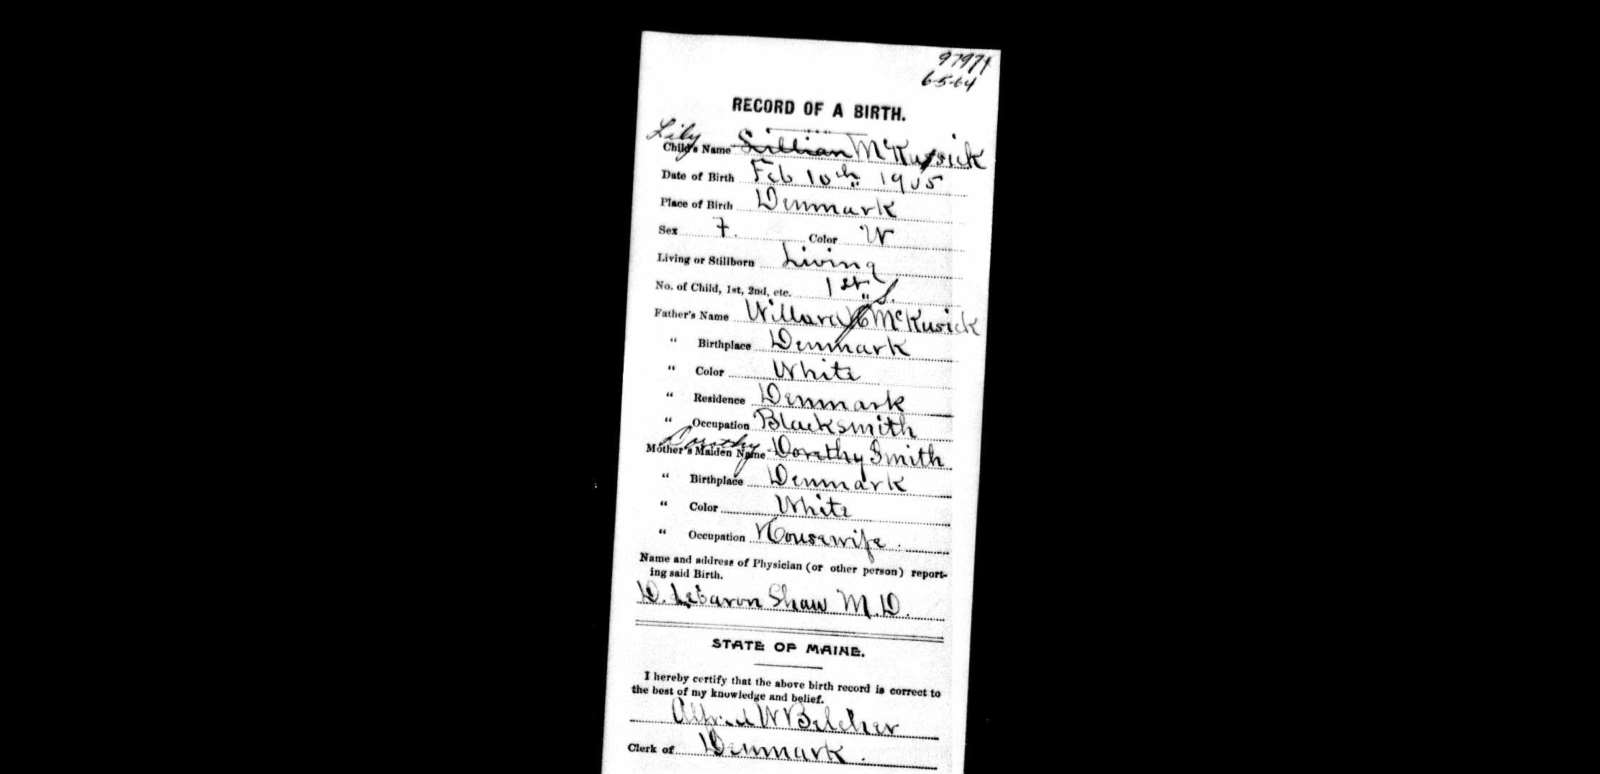 97974
6-5-64
RECORD OF A BIRTH.
Lily
Child's Name Lillian McKusick
Date of Birth Feb 10th 1905
Place of Birth Denmark
Sex F. Color W
Living or Stillborn Living
No. of Child, 1st, 2nd, etc. 1st
Father's Name Willard McKusick
" Birthplace Denmark
" Color White
" Residence Denmark
" Occupation Blacksmith
Dorothy
Mother's Maiden Name Dorethy Smith
" Birthplace Denmark
" Color White
" Occupation Housewife.
Name and address of Physician (or other person) report-
ing said Birth.
D. LeBaron Shaw M.D.
STATE OF MAINE.
I hereby certify that the above birth record is correct to
the best of my knowledge and belief.
Alfred W Belcher
Clerk of Denmark.